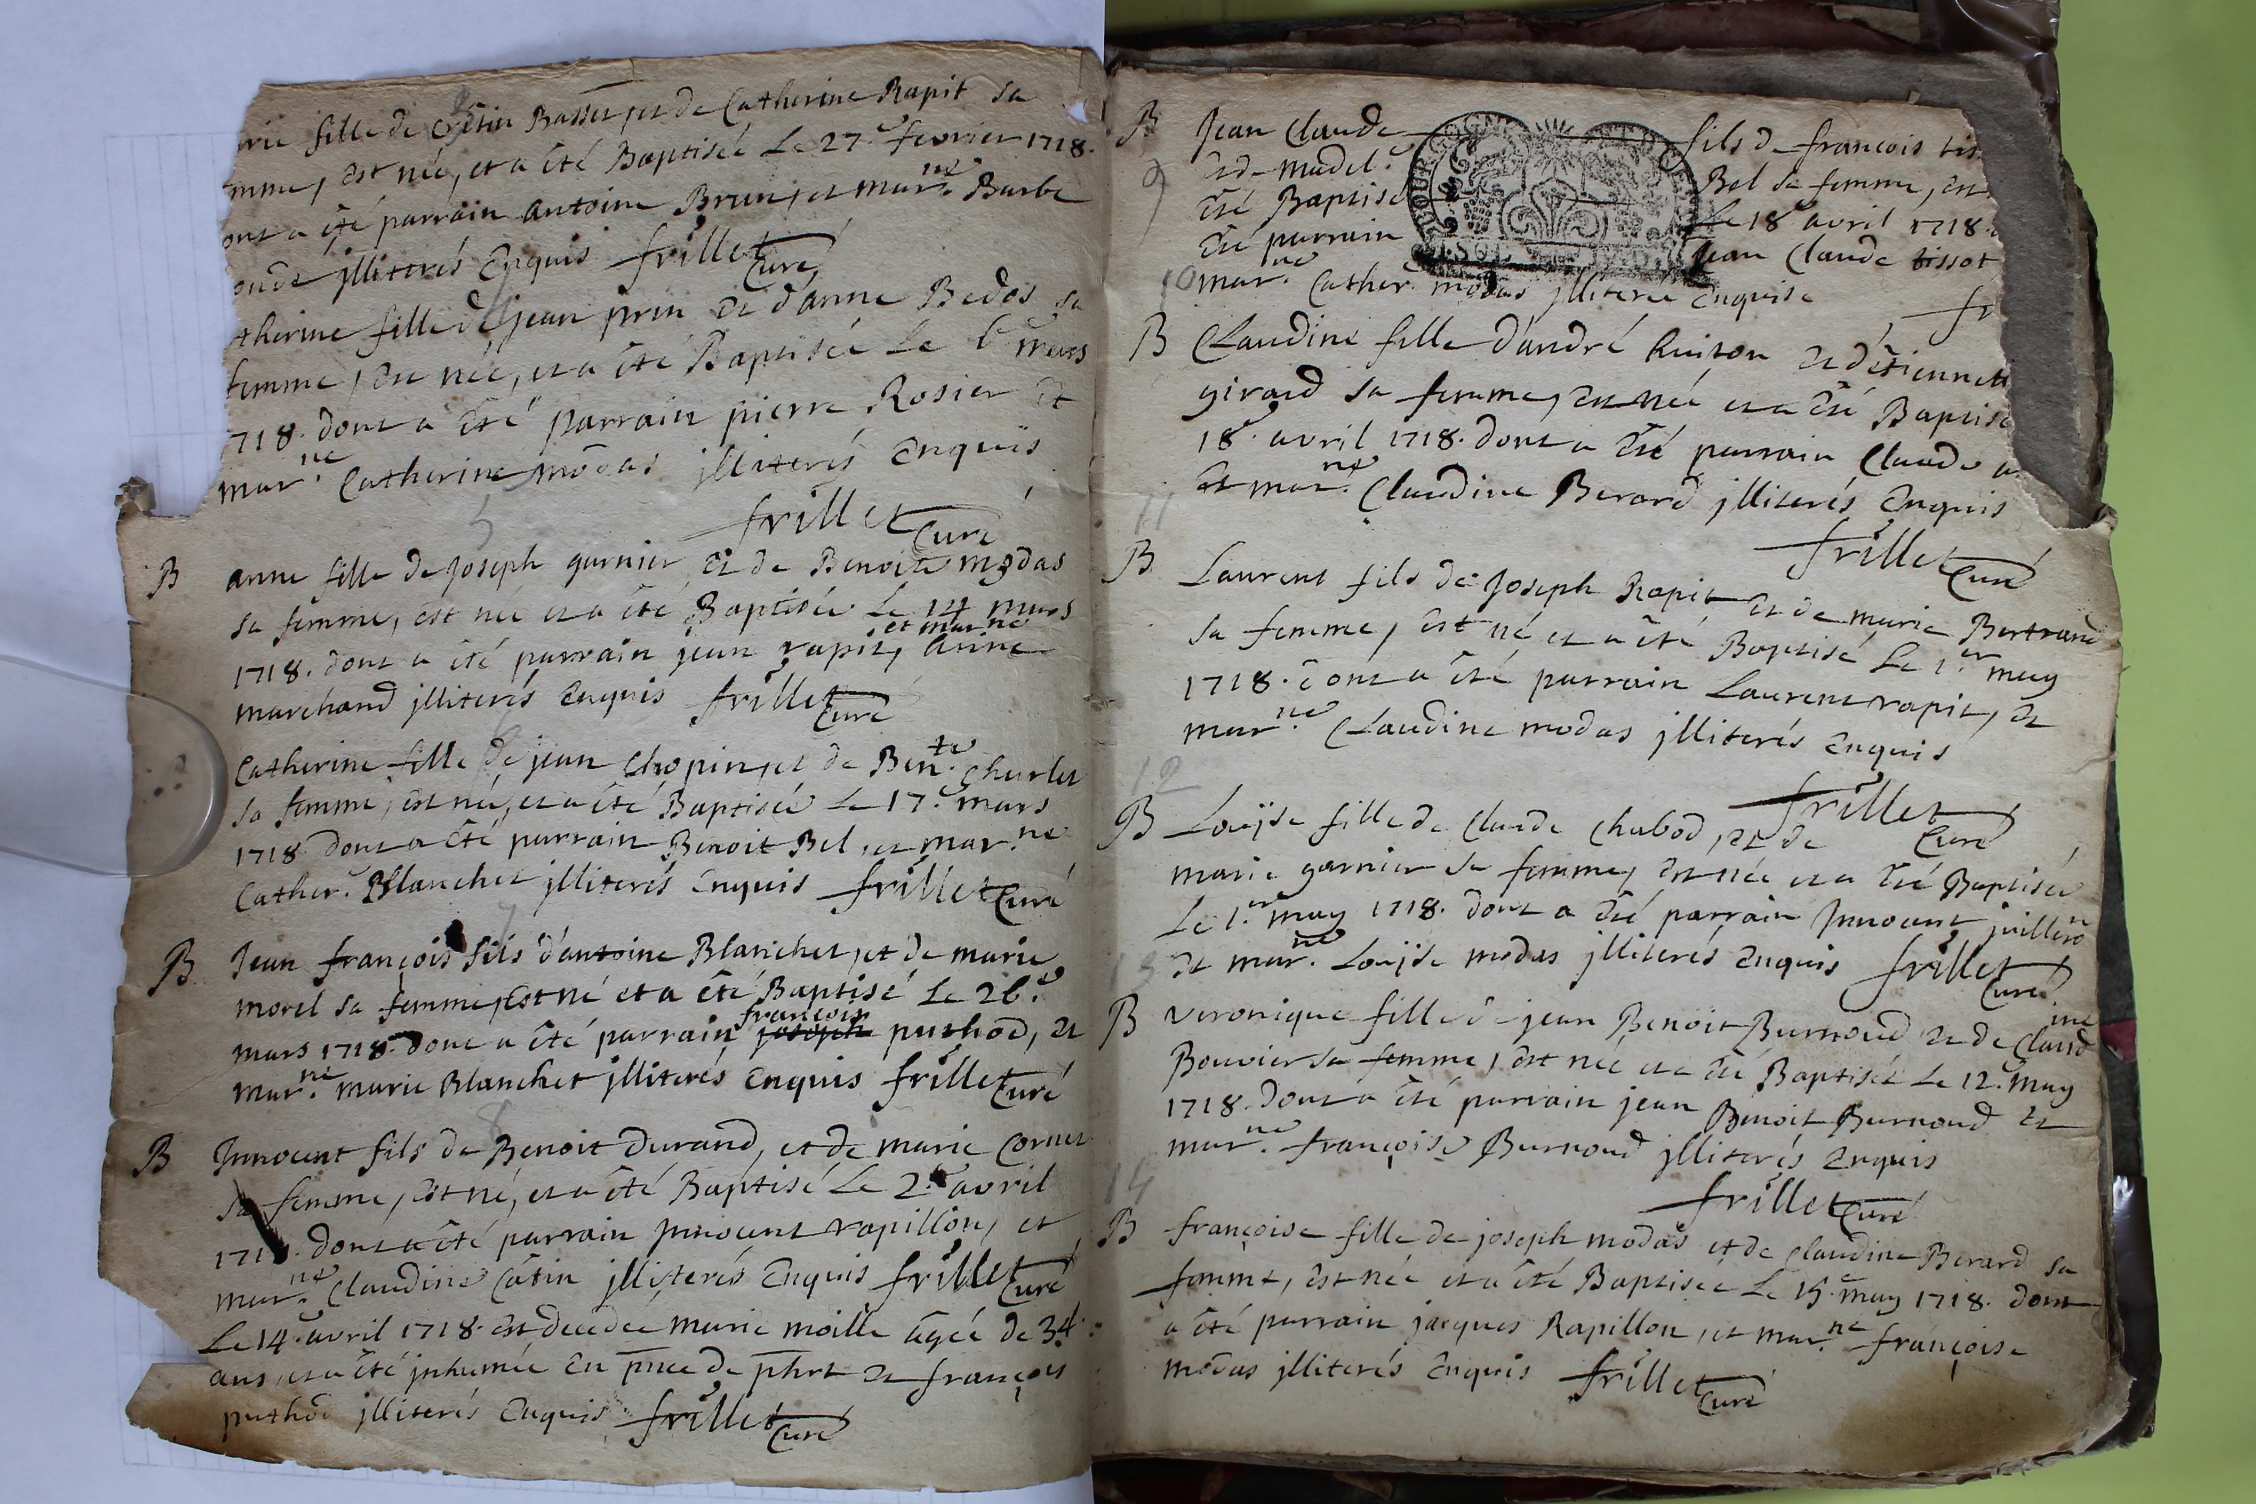 rie fille de Crétin Basset, et de Catherine Rapit sa
emme, est née, et a été Baptisée Le 27.e fevrier 1718.
ont a été parrain antoine Brun, et mar.ne Barbe
illiterés Enquis frillet Curé
therine fille de jean prin et d'anne Bedos sa
femme, est née, et a été Baptisée Le 6.e mars
718. dont a été parrain pierre Rosier et
mar.ne Catherine modas illiterés Enquis
5
frillet Curé
B anne fille de joseph garnier et de Benoite modas
sa femme, est née et a été Baptisée Le 14 mars
1718. dont a été parrain jean rapit, et mar.ne anne
marchand illiterés Enquis frillet Curé
Catherine fille de jean Chopin, et de Ben.te Charlet
sa femme, est née, et a été Baptisée Le 17.e mars
1718 dont a été parrain Benoit Bel, et mar.ne
Cather. Blanchet illiterés Enquis frillet Curé
7
B Jean françois fils d'antoine Blanchet, et de marie
morel sa femme, Est né et a été Baptisé Le 26.e
mars 1718. dont a été parrain joseph françois puthod, et
mar.ne marie Blanchet illiterés Enquis frillet Curé
8
B Innocent fils de Benoit Durand, et de marie Cornet
sa femme, est né, et a été Baptisé Le 2.e avril
171 . dont a été parrain Innocent rapillon, et
mar.ne Claudine Catin illiterés Enquis frillet Curé
Le 14.e avril 1718. est decedée marie moille agée de 34
ans, et a été inhumée En pnce de phrt et françois
puthod illiterés Enquis frillet Curé
B Jean Claude fils de francois tis
9 et de madel.e Bel sa femme, est
été Baptisé Le 18.e avril 1718.
été parrain Jean Claude tissot
10 mar.ne Cather. modas illiterée Enquise
fr
B Claudine fille d'andré Ruiton et d'étiennett
girard sa femme, est née et a été Baptisé
18.e avril 1718. dont a été parrain Claude
et mar.ne Claudine Berard illiterés Enquis
11
frillet Curé
B Laurent fils de joseph Rapit et de marie Bertrand
sa femme, est né et a été Baptisé Le 1.er may
1718. dont a été parrain Laurent rapit, et
mar.ne Claudine modas illiterés Enquis
12
frillet Curé
B Louise fille de Claude Chabod, et de
marie garnier sa femme, est née et a été Baptisée
Le 1.er may 1718. dont a été parrain Innocent juilleron
et mar.ne Louise modas illiterés Enquis frillet Curé
13
B veronique fille de jean Benoit Burnoud et de Claudine
Bouvier sa femme, est née et a été Baptisée Le 12.e may
1718. dont a été parrain jean Benoit Burnoud et
mar.ne françoise Burnoud illiterés Enquis
14
frillet Curé
B françoise fille de joseph modas et de Claudine Berard sa
femme, est née et a été Baptisée Le 15.e may 1718. dont
a été parrain jacques Rapillon, et mar.ne françoise
modas illiterés Enquis frillet Curé